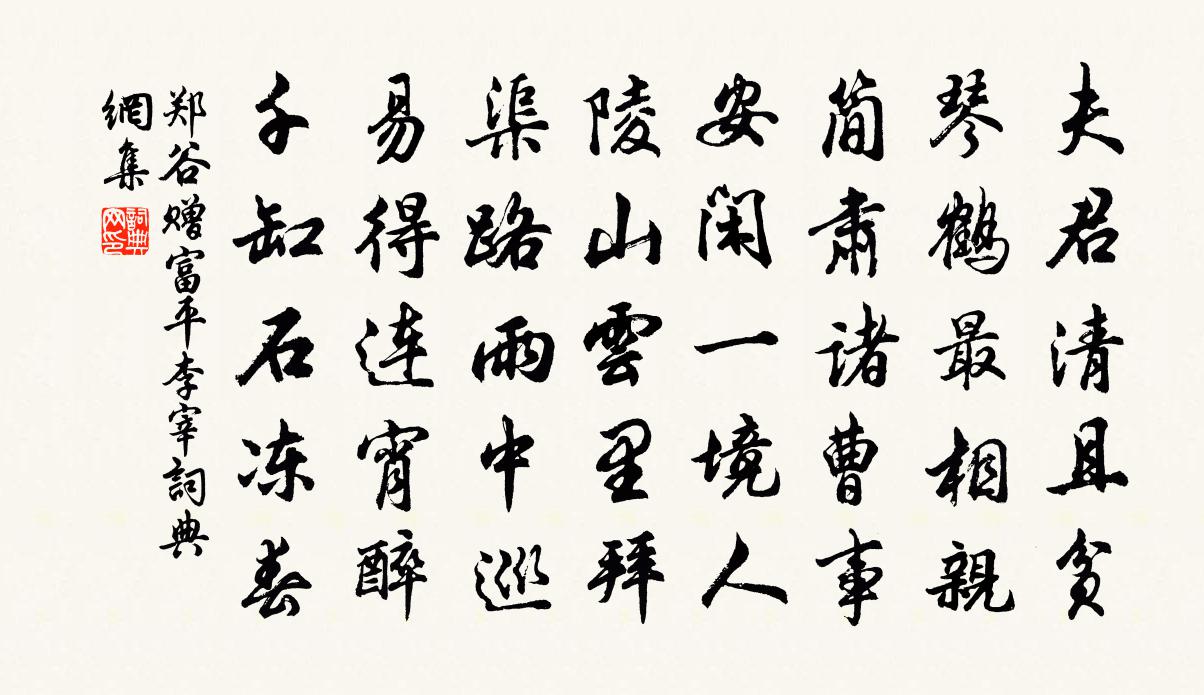 夫君清且贫
琴鹤最相親
简肃诸曹事
安闲一境人
陵山雲里拜
渠路雨中巡
易得连宵醉
千缸石冻春
郑谷赠富平李宰詞典
網集
詞典
网印